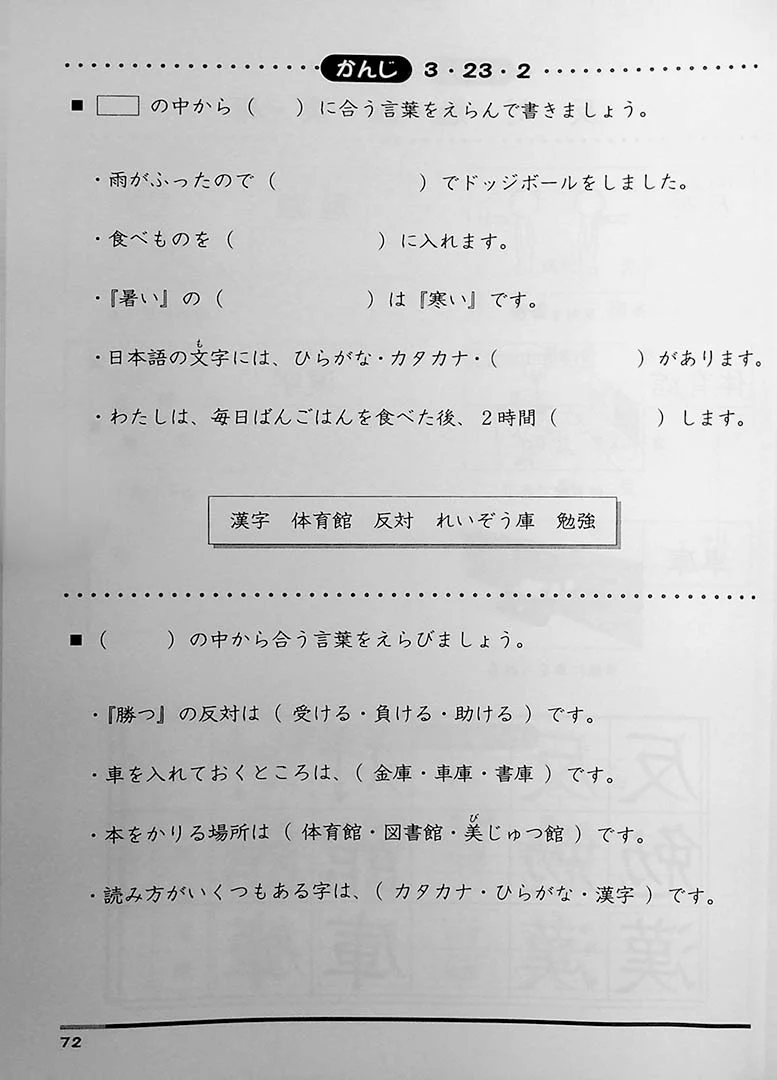 かんじ 3・23・2
■ □ の中から（　　）に合う言葉をえらんで書きましょう。
・雨がふったので（　　　　　　　）でドッジボールをしました。
・食べものを（　　　　　　　）に入れます。
・『暑い』の（　　　　　　　）は『寒い』です。
も
・日本語の文字には、ひらがな・カタカナ・（　　　　　　　）があります。
・わたしは、毎日ばんごはんを食べた後、２時間（　　　　　）します。
漢字　体育館　反対　れいぞう庫　勉強
■（　　　）の中から合う言葉をえらびましょう。
・『勝つ』の反対は（ 受ける・負ける・助ける ）です。
・車を入れておくところは、（ 金庫・車庫・書庫 ）です。
び
・本をかりる場所は（ 体育館・図書館・美じゅつ館 ）です。
・読み方がいくつもある字は、（ カタカナ・ひらがな・漢字 ）です。
72